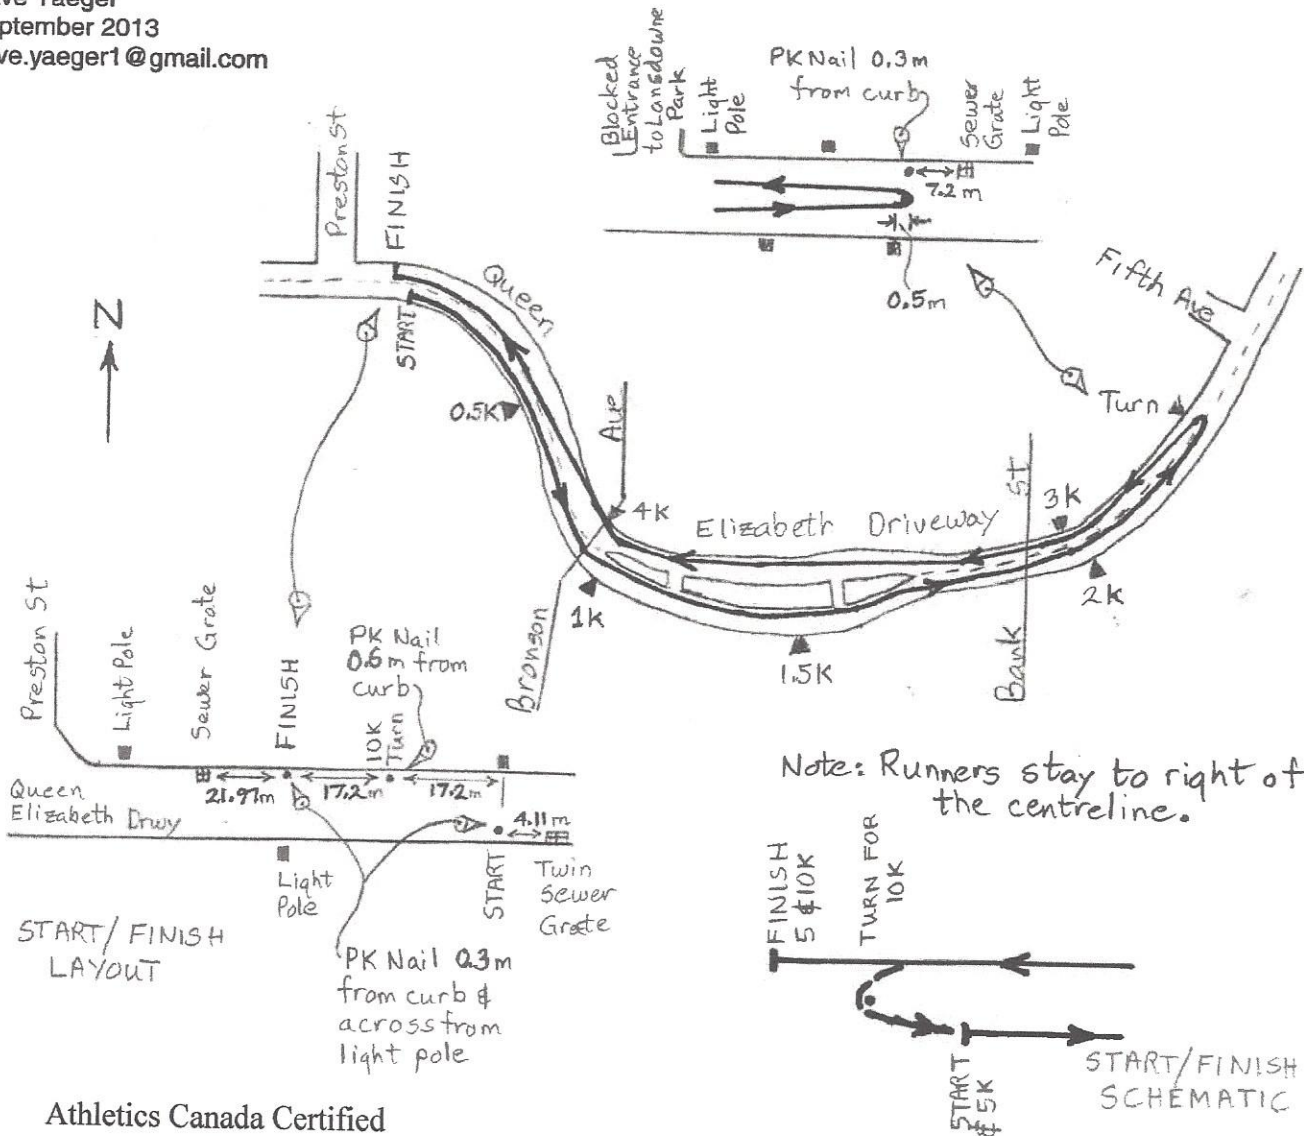 ptember 2013
ve.yaeger1@gmail.com
Blocked
Entrance
to Lansdowne
Park
Light
Pole
PK Nail 0.3m
from curb
Sewer
Grate
Light
Pole
7.2m
0.5m
Preston St
FINISH
Queen
START
N
Fifth Ave
Turn
0.5K
Ave
4K
Elizabeth Driveway
St
3K
2K
1K
1.5K
Bronson
Bank
Preston St
Light Pole
Sewer Grate
FINISH
PK Nail
0.6m from
curb
10K
Turn
21.97m
17.2m
17.2m
Queen
Elizabeth Drwy
4.11m
Light
Pole
START
Twin
Sewer
Grate
START/FINISH
LAYOUT
PK Nail 0.3m
from curb &
across from
light pole
Note: Runners stay to right of
the centreline.
FINISH
5 & 10K
TURN FOR
10K
START
5K
START/FINISH
SCHEMATIC
Athletics Canada Certified